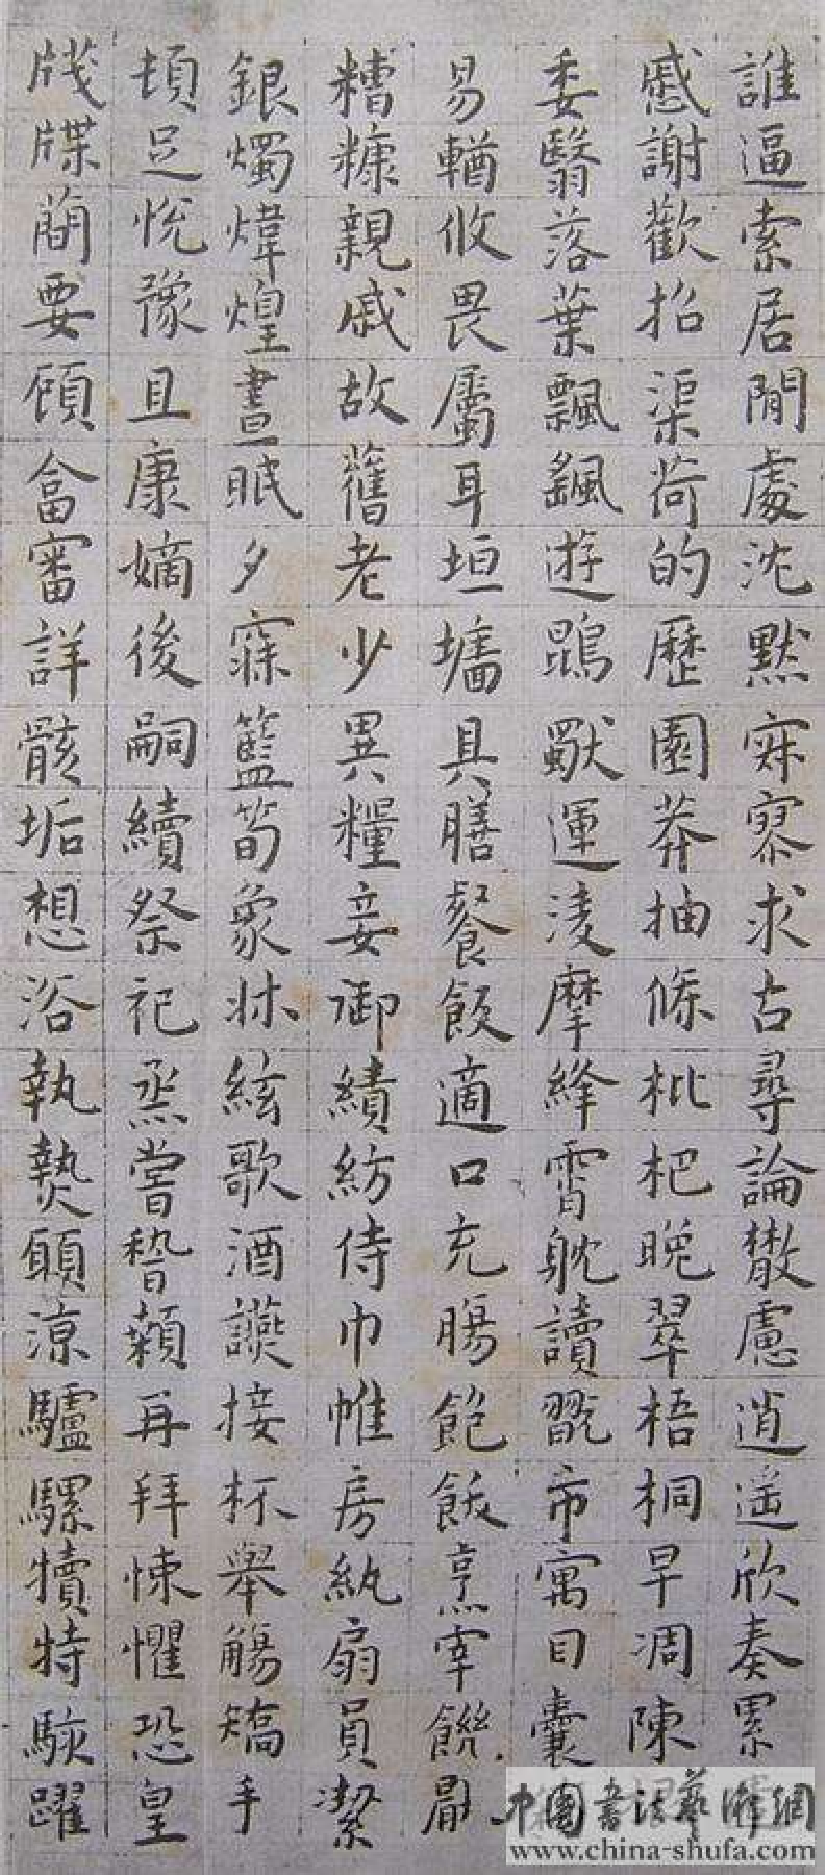 誰逼索居閒處沈默寂寥求古尋論散慮逍遙欣奏累
慼謝歡招渠荷的歷園莽抽條枇杷晚翠梧桐早凋陳
委翳落葉飄颻遊鵾獸運淩摩絳霄躭讀翫市寓目囊
易輶攸畏屬耳垣墻具膳餐飯適口充腸飽飫烹宰饑厭
糟糠親戚故舊老少異糧妾御績紡侍巾帷房紈扇員潔
銀燭煒煌晝眠夕寐籃筍象牀絃歌酒讌接杯舉觴矯手
頓足悅豫且康嫡後嗣續祭祀烝嘗稽顙再拜悚懼恐皇
牋牒簡要顧畣審詳骸垢想浴執熱願涼驢騾犢特駭躍
中國書法藝術網
www.china-shufa.com